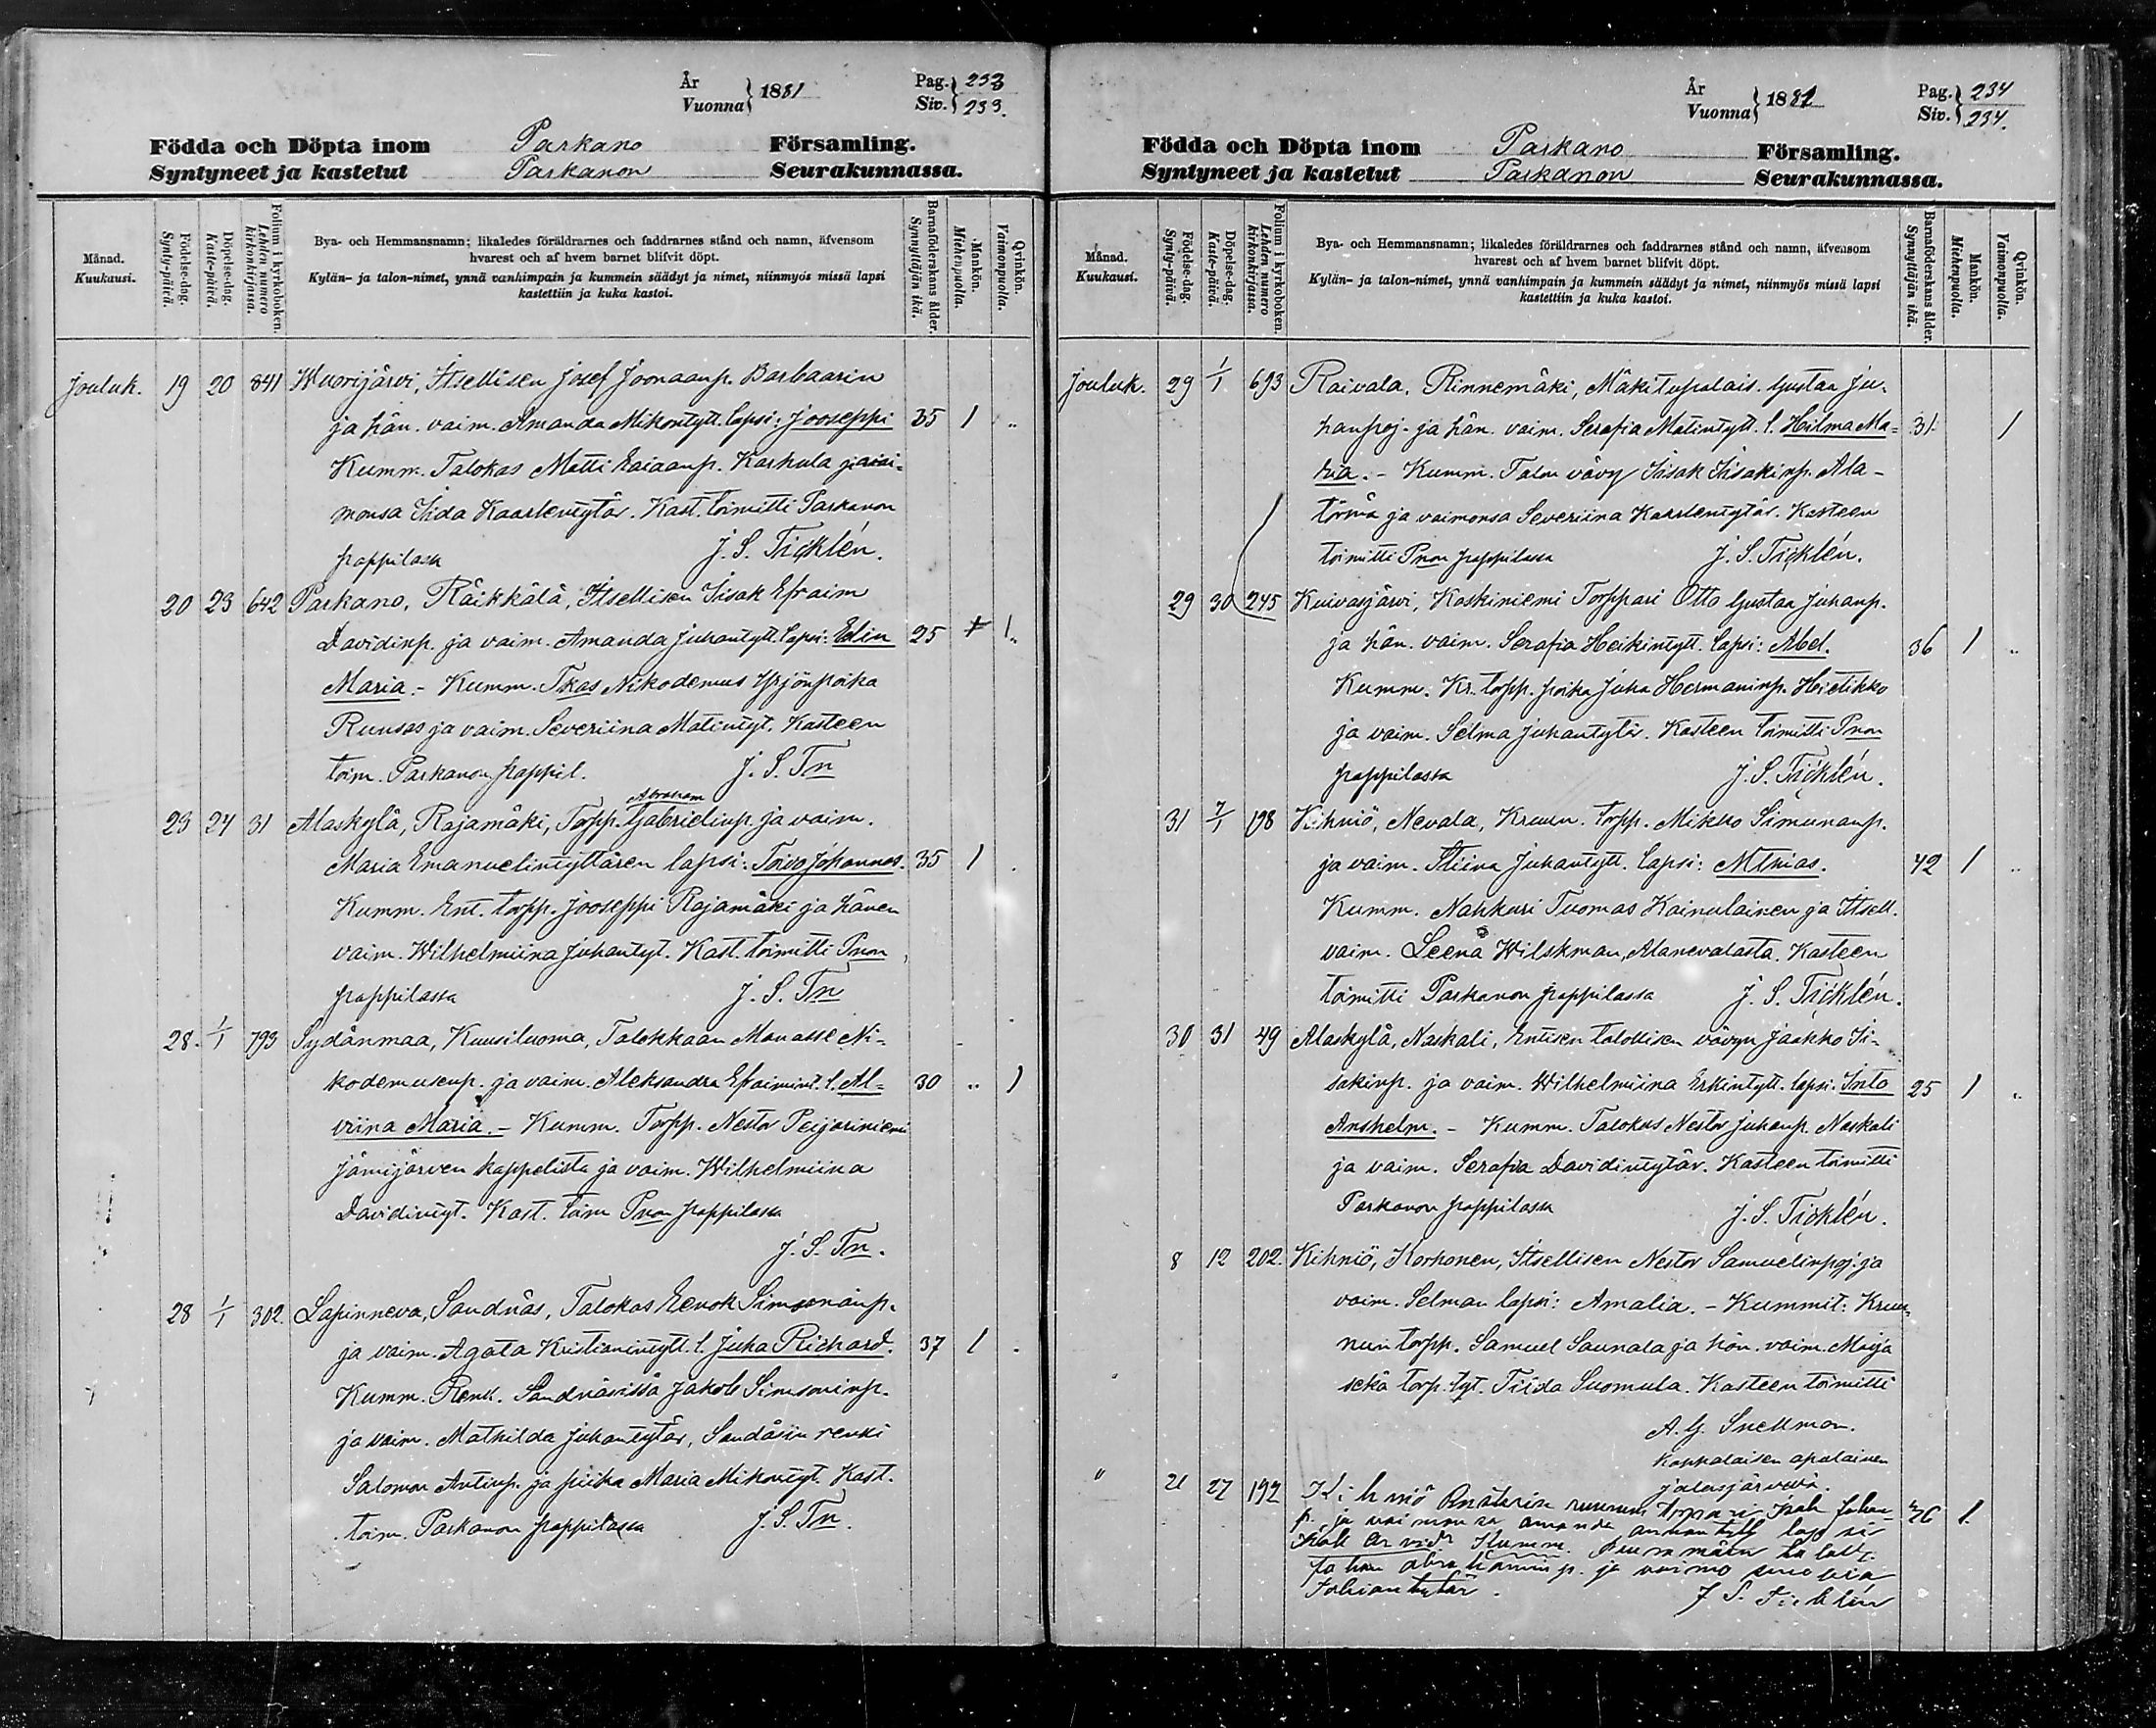 År
Vuonna } 1881
Pag. } 233
Siv. } 233.
Födda och Döpta inom Parkano Församling.
Syntyneet ja kastetut Parkanon Seurakunnassa.
Månad.
Kuukausi.
Födelse-dag.
Synty-päivä.
Döpelse-dag.
Kaste-päivä.
Folium i kyrkoboken.
Lehden numero
kirkonkirjassa.
Bya- och Hemmansnamn; likaledes föräldrarnes och faddrarnes stånd och namn, äfvensom
hvarest och af hvem barnet blifvit döpt.
Kylän- ja talon-nimet, ynnä vanhimpain ja kummein säädyt ja nimet, niinmyös missä lapsi
kastettiin ja kuka kastoi.
Barnaföderskans ålder.
Synnyttäjän ikä.
Mankön.
Miehenpuolia.
Qvinkön.
Vaimonpuolia.
Jouluk. 19 20 841 Wuorijärvi, Itsellisen Josef Joonaanp. Barbaarin
ja hän. vaim. Amanda Mikontytt. lapsi: Jooseppi 35 1 ..
Kumm. Talokas Matti Esaianp. Karhula ja vai-
monsa Iida Kaarlentytär. Kast. toimitti Parkanon
pappilassa J. S. Ticklén.
20 23 642 Parkano, Räikkälä, Itsellisen Iisak Efraim
Davidinp. ja vaim. Amanda Juhantytt. lapsi: Edin 25 1 1..
Maria. - Kumm. Tkas Nikodemus Yrjönpoika
Ruusas ja vaim. Severiina Matintyt. Kasteen
toim. Parkanon pappil. J. S. Tn
Abraham
23 24 31 Alaskylä, Rajamäki, Torpp. Gabrielinp. ja vaim.
Maria Emanuelintyttären lapsi: Toivo Johannes. 35 1 .
Kumm. Ent. torpp. Jooseppi Rajamäki ja hänen
vaim. Wilhelmiina Juhantyt. Kast. toimitti Pnon
pappilassa J. S. Tn
28. 1/1 793 Sydänmaa, Kuusiluoma, Talokkaan Manasse Ni-
kodemusenp. ja vaim. Aleksandra Efraimint. l. Al- 30 .. 1
viina Maria. - Kumm. Torpp. Nestor Peijariniemi
Jämijärven kappelista ja vaim. Wilhelmiina
Davidintyt. Kast. toim Pnon pappilassa
J. S. Tn.
28 1/1 302. Lapinneva, Sandnäs, Talokas Eenok Simsonanp.
ja vaim. Agata Kristianintytt. l. Juha Richard. 37 1 .
Kumm. Renk. Sandnäsissä Jakob Simsoninp.
ja vaim. Mathilda Juhantytär, Sandåsin renki
Salomon Antinp. ja piika Maria Mikontyt. Kast.
toim. Parkanon pappilassa J. S. Tn.
År
Vuonna } 1881
Pag. } 234
Siv. } 234.
Födda och Döpta inom Parkano Församling.
Syntyneet ja kastetut Parkanon Seurakunnassa.
Månad.
Kuukausi.
Födelse-dag.
Synty-päivä.
Döpelse-dag.
Kaste-päivä.
Folium i kyrkoboken.
Lehden numero
kirkonkirjassa.
Bya- och Hemmansnamn; likaledes föräldrarnes och faddrarnes stånd och namn, äfvensom
hvarest och af hvem barnet blifvit döpt.
Kylän- ja talon-nimet, ynnä vanhimpain ja kummein säädyt ja nimet, niinmyös missä lapsi
kastettiin ja kuka kastoi.
Barnaföderskans ålder.
Synnyttäjän ikä.
Mankön.
Miehenpuolia.
Qvinkön.
Vaimonpuolia.
Jouluk. 29 1/1 693 Raivala, Rinnemäki, Mäkitupalais. Gustaa Ju-
hanpoj. ja hän. vaim. Serafia Matintytt. l. Hilma Ma- 31. 1
ria. - Kumm. Talon vävy Iisak Iisakinp. Ala-
törmä ja vaimonsa Severiina Kaarlentytär. Kasteen
toimitti Pnon pappilassa J. S. Ticklén.
29 30 245 Kuivasjärvi, Koskiniemi Torppari Otto Gustaa Juhanp.
ja hän. vaim. Serafia Heikintytt. lapsi: Abel. 36 1 ..
Kumm. Kr. torpp. poika Juha Hermaninp. Hietikko
ja vaim. Selma Juhantytär. Kasteen toimitti Pnon
pappilassa J. S. Ticklén.
31 7/1 198 Kihniö, Nevala, Kruun. torpp. Mikko Simunanp.
ja vaim. Stiina Juhantytt. lapsi: Mthias. 42 1 ..
Kumm. Nahkuri Tuomas Kainulainen ja Itsell.
vaim. Leena Wilskman, Alanevalasta. Kasteen
toimitti Parkanon pappilassa J. S. Ticklén.
30 31 49 Alaskylä, Naskali, Entisen talollisen vävyn Jaakko Ii-
sakinp. ja vaim. Wilhelmiina Erkintytt. lapsi: Into 25 1 ..
Anshelm. - Kumm. Talokas Nestor Juhanp. Naskali
ja vaim. Serafia Davidintytär. Kasteen toimitti
Parkanon pappilassa J. S. Ticklén.
8 12 202. Kihniö, Korhonen, Itsellisen Nestor Samuelinpoj. ja
vaim. Selman lapsi: Amalia. - Kummit: Kruu-
nun torpp. Samuel Saunala ja hän. vaim. Maija
sekä torp. tyt. Tiida Suomula. Kasteen toimitti
A. G. Snellman.
Kappalaisen apulainen
Jalasjärvellä.
" 21 27 192 Kihniö ruunun torpari Isak Johan
p. ja vaimonsa Amanda lapsi 26 1.
Isak Arvid Kumm.
Johan Abrahamin p. ja vaimo
Johiantytär. J. S. Ticklén